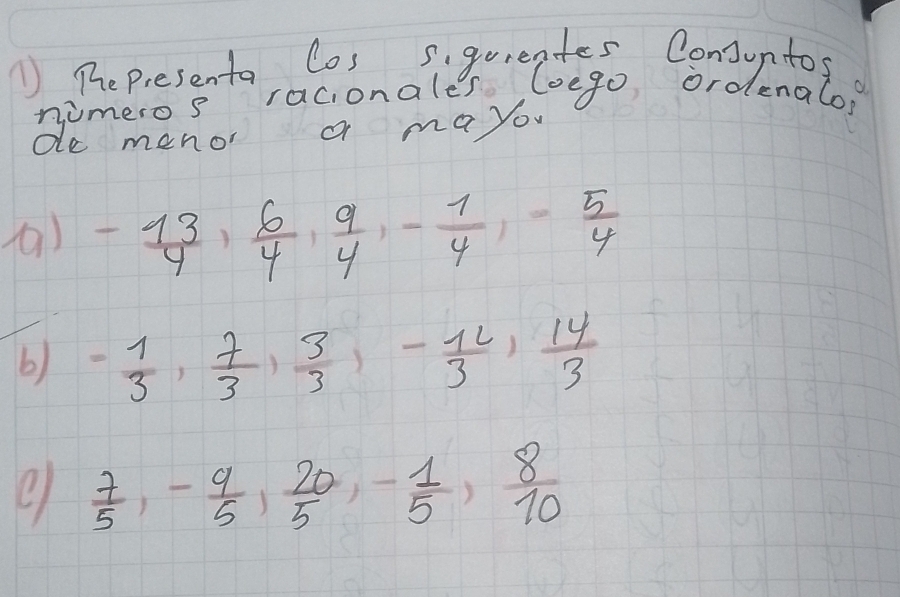 1) Representa los siguientes Conjuntos a
números racionales. Luego, ordenalos
de menor a mayor
a) - 13/4, 6/4, 9/4, - 1/4, - 5/4
b) - 1/3, 7/3, 3/3, - 12/3, 14/3
c) 7/5, - 9/5, 20/5, - 1/5, 8/10